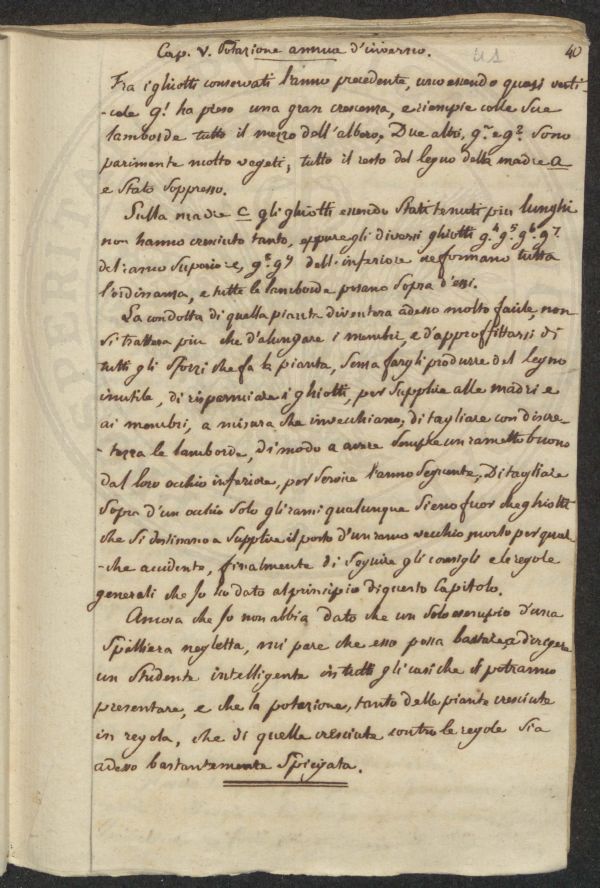 Cap. V. Potazione annua d'inverno. 40
Fra i ghiotti conservati l'anno precedente, uno essendo quasi verti-
-cale g! ha preso una gran crescenza, e riempie colle sue
lamborde tutto il mezzo dell'albero, Due altri, g.² e g.³ sono
parimente molto vegeti, tutto il resto del legno della madre a
e stato soppresso.
Sulla madre c gli ghiotti essendo stati tenuti piu lunghi
non hanno cresciuto tanto, eppure gli diversi ghiotti g.⁴ g.⁵ g.⁶ g.⁷
del ramo superiore, g.⁸ g.⁹ dell'inferiore ne formano tutta
l'ordinanza, e tutte le lamborde posano sopra d'essi.
La condotta di quella pianta diventera adesso molto facile, non
si trattera piu che d'alungare i membri, e d'approffittarsi di
tutti gli sforzi che fa la pianta, senza fargli produrre del legno
inutile, di risparmiare i ghiotti, per supplire alle madri e
ai membri, a misura che invecchiano, di tagliare con discre-
-tezza le lamborde, di modo a avere sempre un rametto buono
dal loro occhio inferiore, per servire l'anno seguente, Di tagliare
sopra d'un occhio solo gli rami qualunque sieno fuor che ghiotti
che si destinano a supplire il posto d'un ramo vecchio morto per qual-
-che accidente, finalmente di seguire gli consigli e le regole
generali che Jo ho dato al principio di questo Capitolo.
Ancora che Jo non abbia dato che un solo esempio d'una
spalliera negletta, mi pare che esso possa bastare a dirigere
un studente intelligente in tutti gli casi che si potranno
presentare, e che la potazione, tanto delle piante cresciute
in regola, che di quelle cresciute contro le regole sia
adesso bastantemente spiegata.